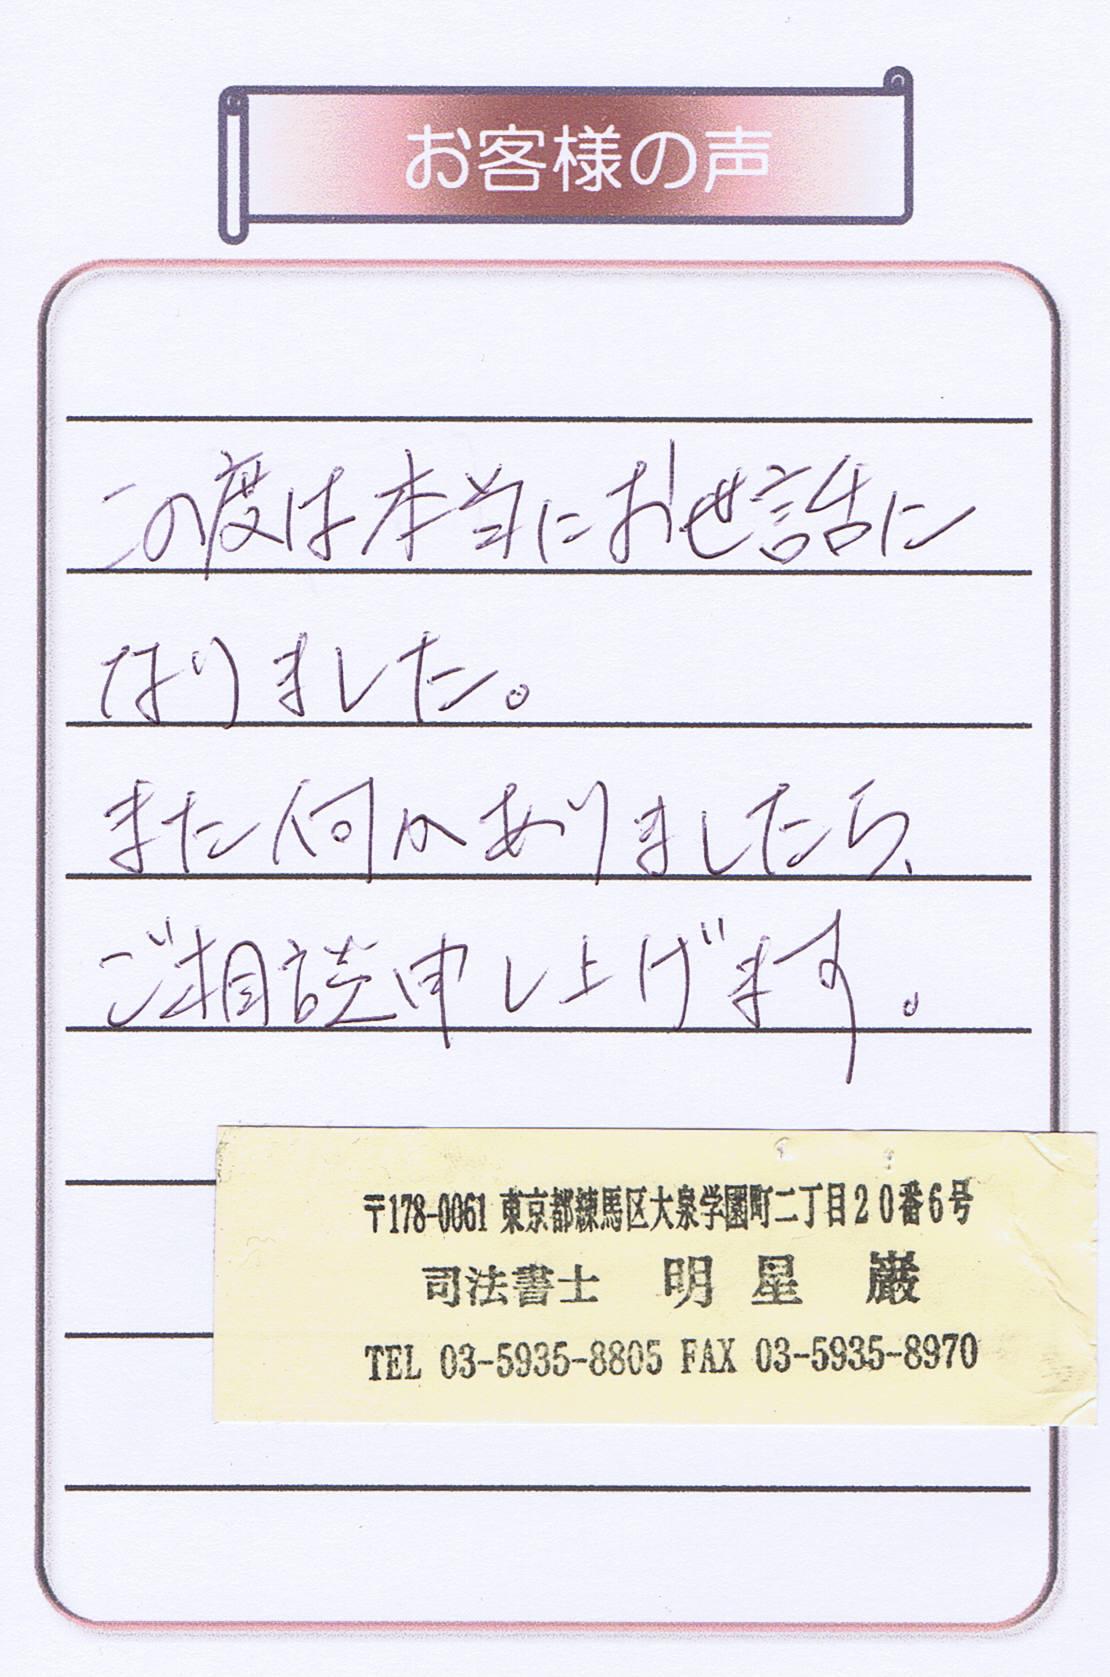 お客様の声
この度は本当にお世話に
なりました。
また何かありましたら、
ご相談申し上げます。
〒178-0061 東京都練馬区大泉学園町二丁目20番6号
司法書士 明星 巌
TEL 03-5935-8805 FAX 03-5935-8970